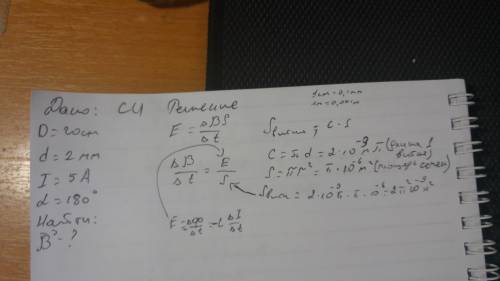 Дано: СИ Решение
D = 20см
d = 2 мм
I = 5А
α = 180°
Найти:
B - ?
E = ΔBS/Δt
ΔB/Δt = E/S
E = -Δφ/Δt = -L ΔI/Δt
1см = 0,1мм
Sвитка = C · S
C = πd = 2·10⁻³π (длина 1 витка)
S = πr² = π·10⁻⁶м²
Sвит = 2·10⁻³π·π·10⁻⁶ = 2π²10⁻⁹м²